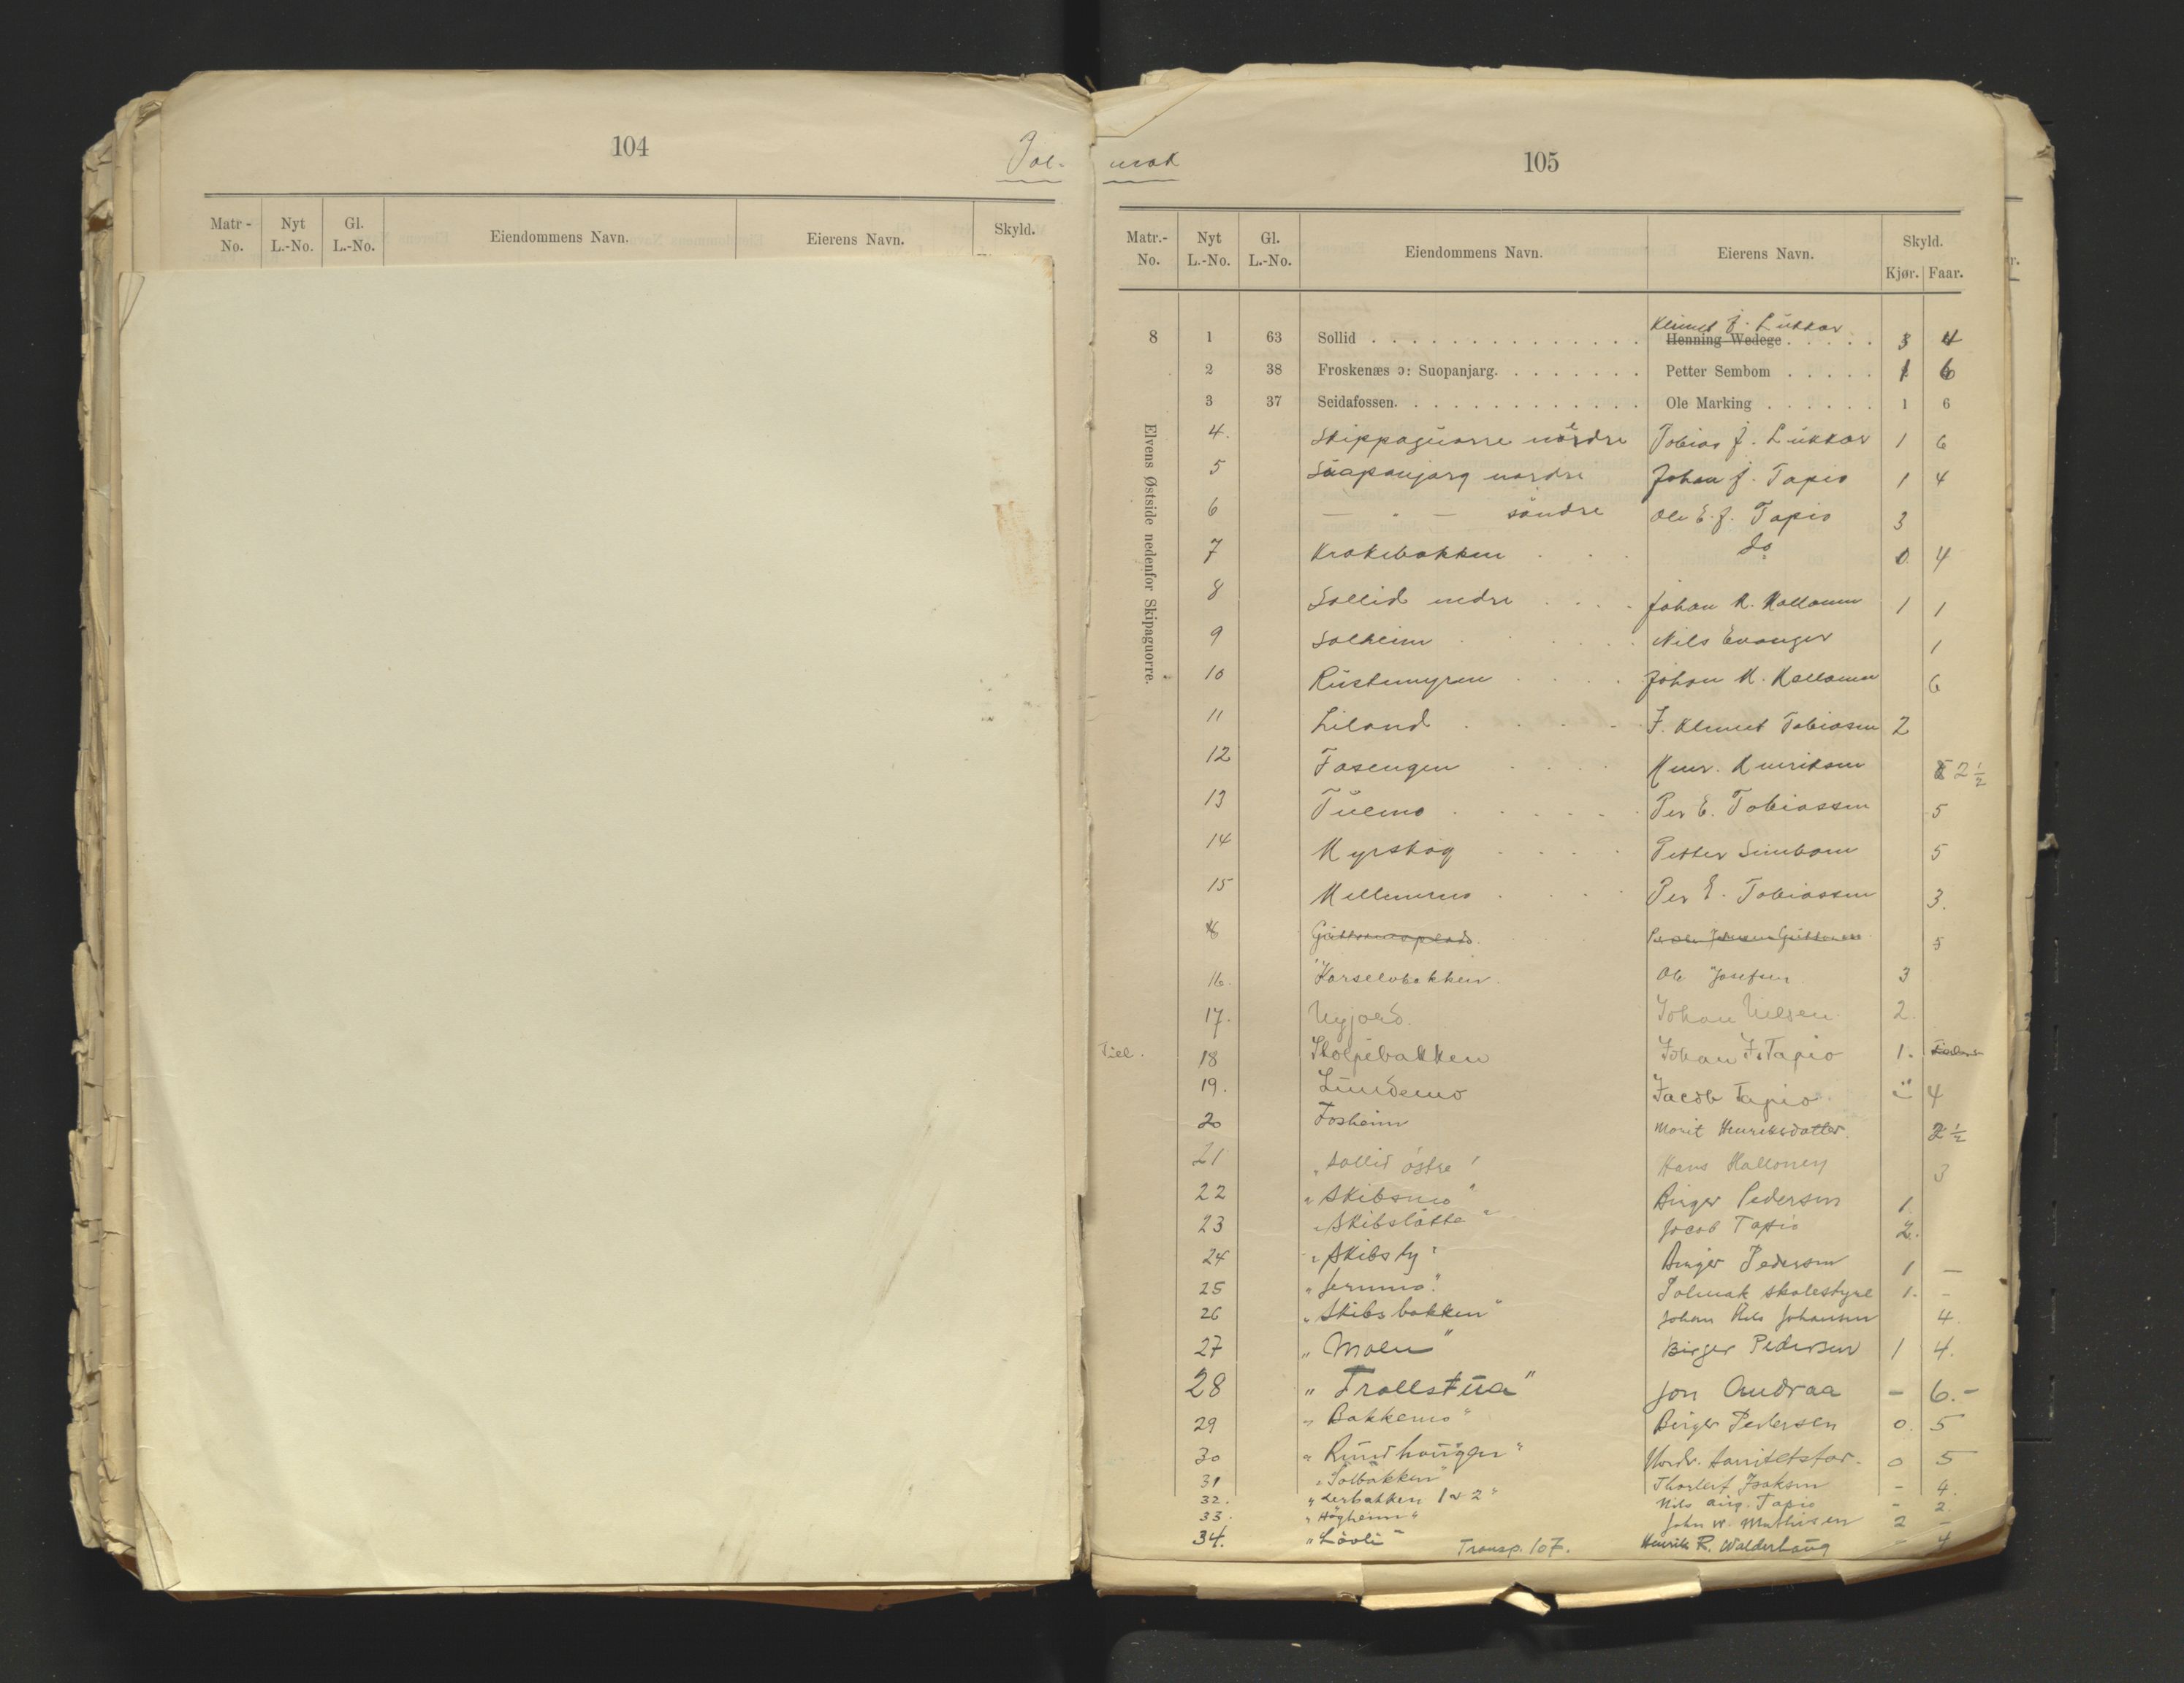 104
Pol-
Matr-No. Nyt L.-No. Gl. L.-No. Eiendommens Navn. Eierens Navn. Skyld.
mak
105
Matr.-No. Nyt L.-No. Gl. L.-No. Eiendommens Navn. Eierens Navn. Skyld. Kjør. Faar.
Elvens Østside nedenfor Skipaguorre.
Klemet J. Lukkar
8 1 63 Sollid Henning Wedege 3 4
2 38 Froskenæs ɔ: Suopanjarg. Petter Sembom 1 6
3 37 Seidafossen. Ole Marking 1 6
4. Skippaguorre nedre Tobias J. Lukkar 1 6
5 Suapanjarg nordre Johan J. Tapio 1 4
6 — " — söndre Ole E. J. Tapio 3
7 Krokebakken Do 0 4
8 Sollid nedre Johan K. Hallonen 1 1
9 Solheim Nils Evanger 1
10 Rustemyren Johan K. Hallonen 6
11 Liland J. Klemet Tobiasen 2
12 Fosengen Henr. Henriksen 2½
13 Tuemo Per E. Tobiassen 5
14 Myrskog Petter Sembom 5
15 Mellemmo Per E. Tobiassen 3.
5
16. Karselvbakken. Ole Josefsen 3
17. Nyjord. Johan Nilsen. 2.
18 Stolpebakken Johan J. Tapio 1.
19. Lundemo Jacob Tapio 4
20 Fosheim Marit Henriksdatter. 2½
21 "Sollid östre" Hans Halloney 3
22 "Skibsmo" Birger Pedersen 1
23 "Skibslåtte" Jacob Tapio 2.
24 "Skibsly" Birger Pedersen 1 —
25 "Jernmo". Polmak skolestyre 1. -
26 "Skibsbakken" Johan Nils Johansen 4
27 "Moen" Birger Pedersen 1 4.
28 "Trollstua" Jon Andraa - 6.-
29 "Bakkemo" Birger Pedersen 0. 5
30 "Rundhaugen" Nordr. Sanitetsfor. 0 5
31 "Solbakken" Thorleif Isaksen - 4.
32. "Lerbakken 1 & 2" Nils Aug. Tapio - 2.
33. "Högheim" John M. Mathisen 2 -
34. "Lövli" Transp. 107. Henrik R. Walderhaug - 4